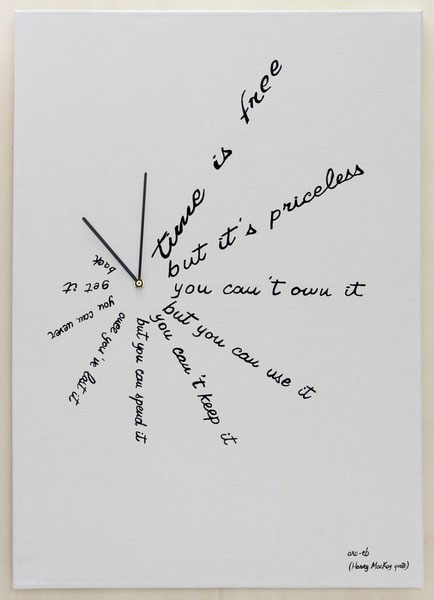 time is free
but it's priceless
you can't own it
but you can use it
you can't keep it
but you can spend it
once you've lost it
you can never
get it
back
arc-eb
(Harvey MacKay quote)